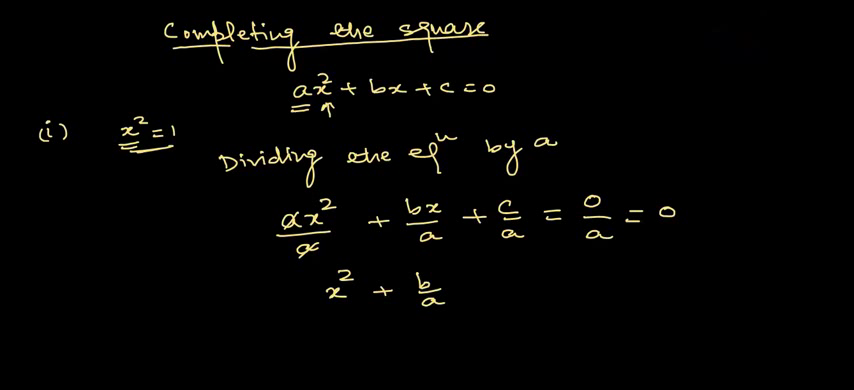 Completing the square
ax² + bx + c = 0
(i) x² = 1
Dividing the eqⁿ by a
ax²/a + bx/a + c/a = 0/a = 0
x² + b/a